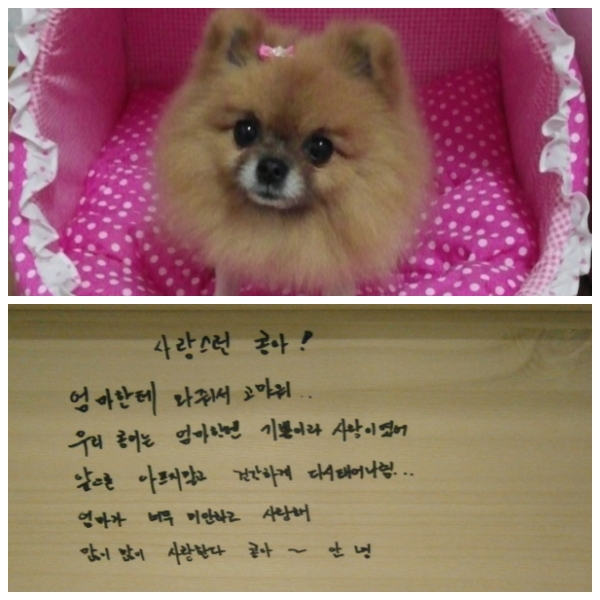 사랑스런 콩아!
엄마한테 와줘서 고마워..
우리 콩이는 엄마한텐 기쁨이라 사랑이였어
앞으론 아프지말고 건강하게 다시태어나렴...
엄마가 너무 미안하고 사랑해
많이 많이 사랑한다 콩아 ~ 안녕